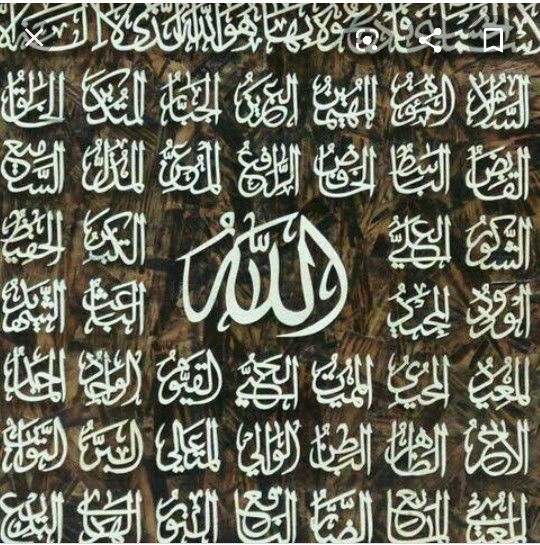 فادعوه بها هو الله الذي لا اله
السلام المؤمن المهيمن العزيز الجبار المتكبر الخالق
القابض الباسط الخافض الرافع المعز المذل السميع
الشكور العلي الكبير الحفيظ
الله
الودود المجيد الباعث الشهيد
المعيد المحيي المميت الحي القيوم الواجد الماجد
الآخر الظاهر الباطن الوالي المتعالي البر التواب
المغني المانع الضار النافع النور الهادي البديع